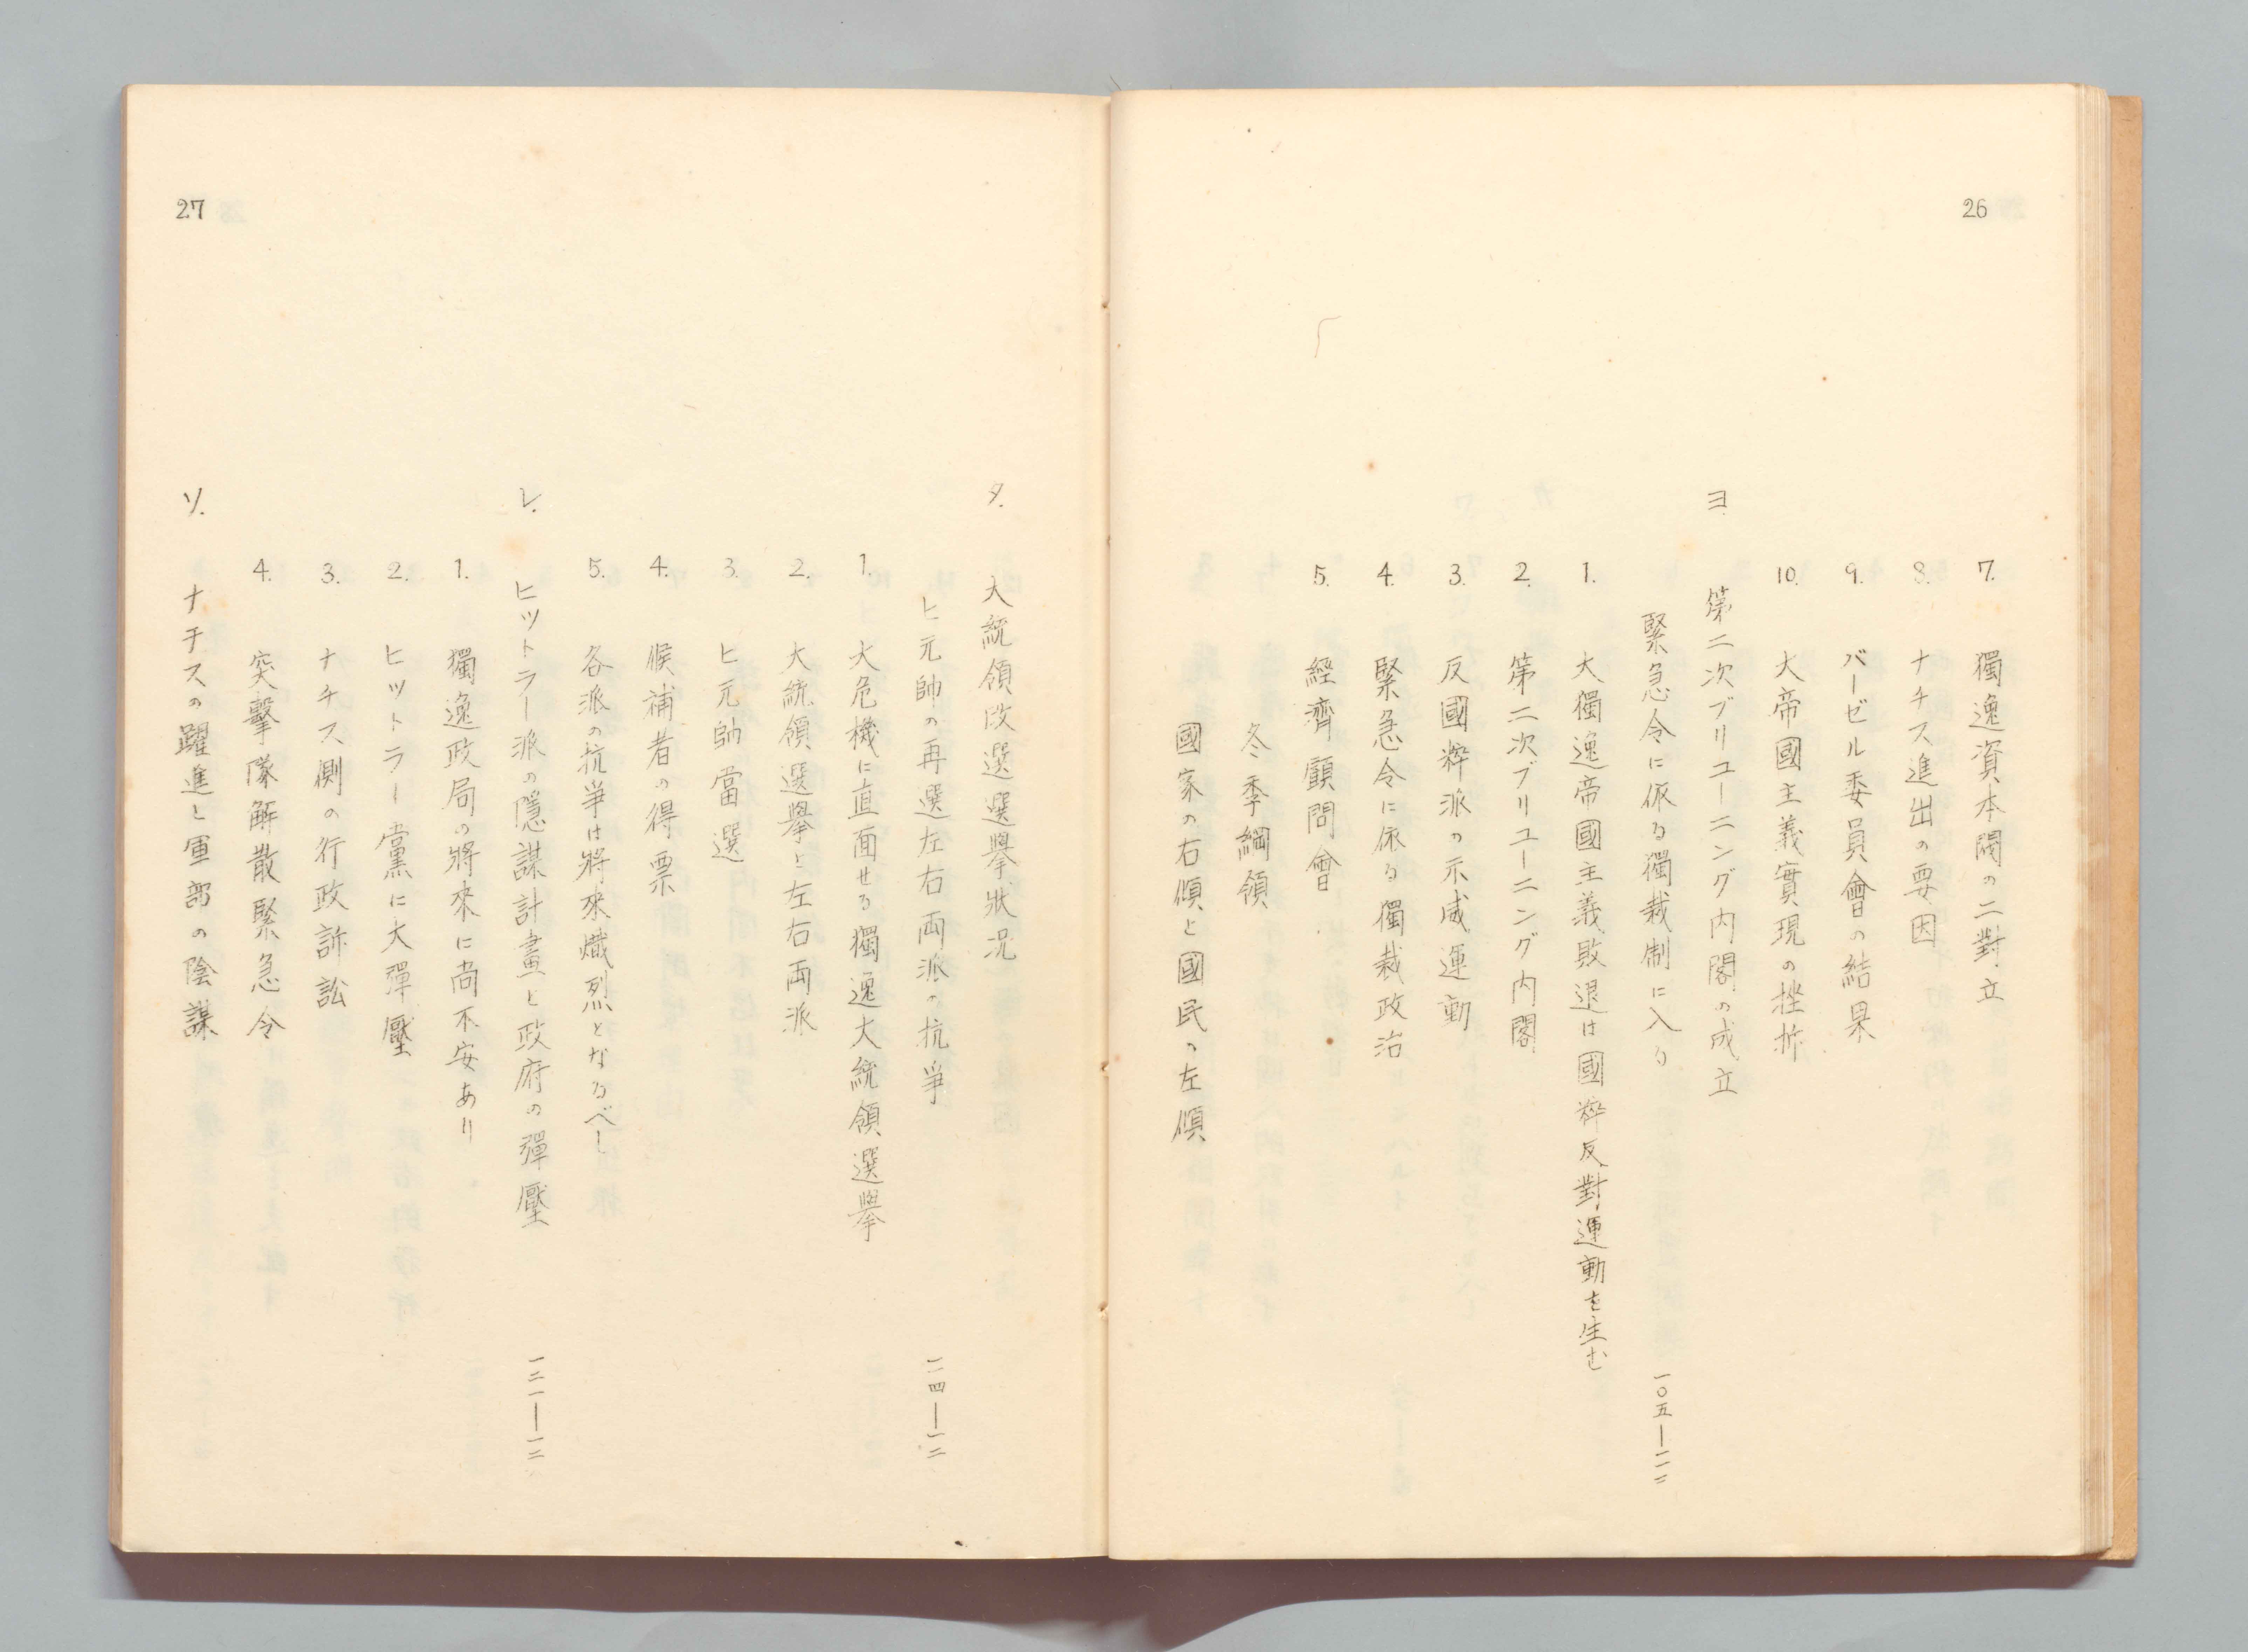 26
7. 獨逸資本閥の二對立
8. ナチス進出の要因
9. バーゼル委員會の結果
10. 大帝國主義實現の挫折
ヨ. 第二次ブリューニング内閣の成立
緊急令に依る獨裁制に入る 一〇五—一一二
1. 大獨逸帝國主義敗退は國粹反對運動を生む
2. 第二次ブリューニング内閣
3. 反國粹派の示威運動
4. 緊急令に依る獨裁政治
5. 經濟顧問會
冬季綱領
國家の右傾と國民の左傾
タ. 大統領改選選擧狀況
ヒ元帥の再選左右両派の抗爭
1. 大危機に直面せる獨逸大統領選擧
2. 大統領選擧と左右両派
3. ヒ元帥當選
4. 候補者の得票
5. 各派の抗爭は將來熾烈となるべし
レ. ヒットラー派の隱謀計畫と政府の彈壓
1. 獨逸政局の將來に尚不安あり
2. ヒットラー黨に大彈壓
3. ナチス側の行政訴訟
4. 突擊隊解散緊急令
ソ. ナチスの躍進と軍部の陰謀
27